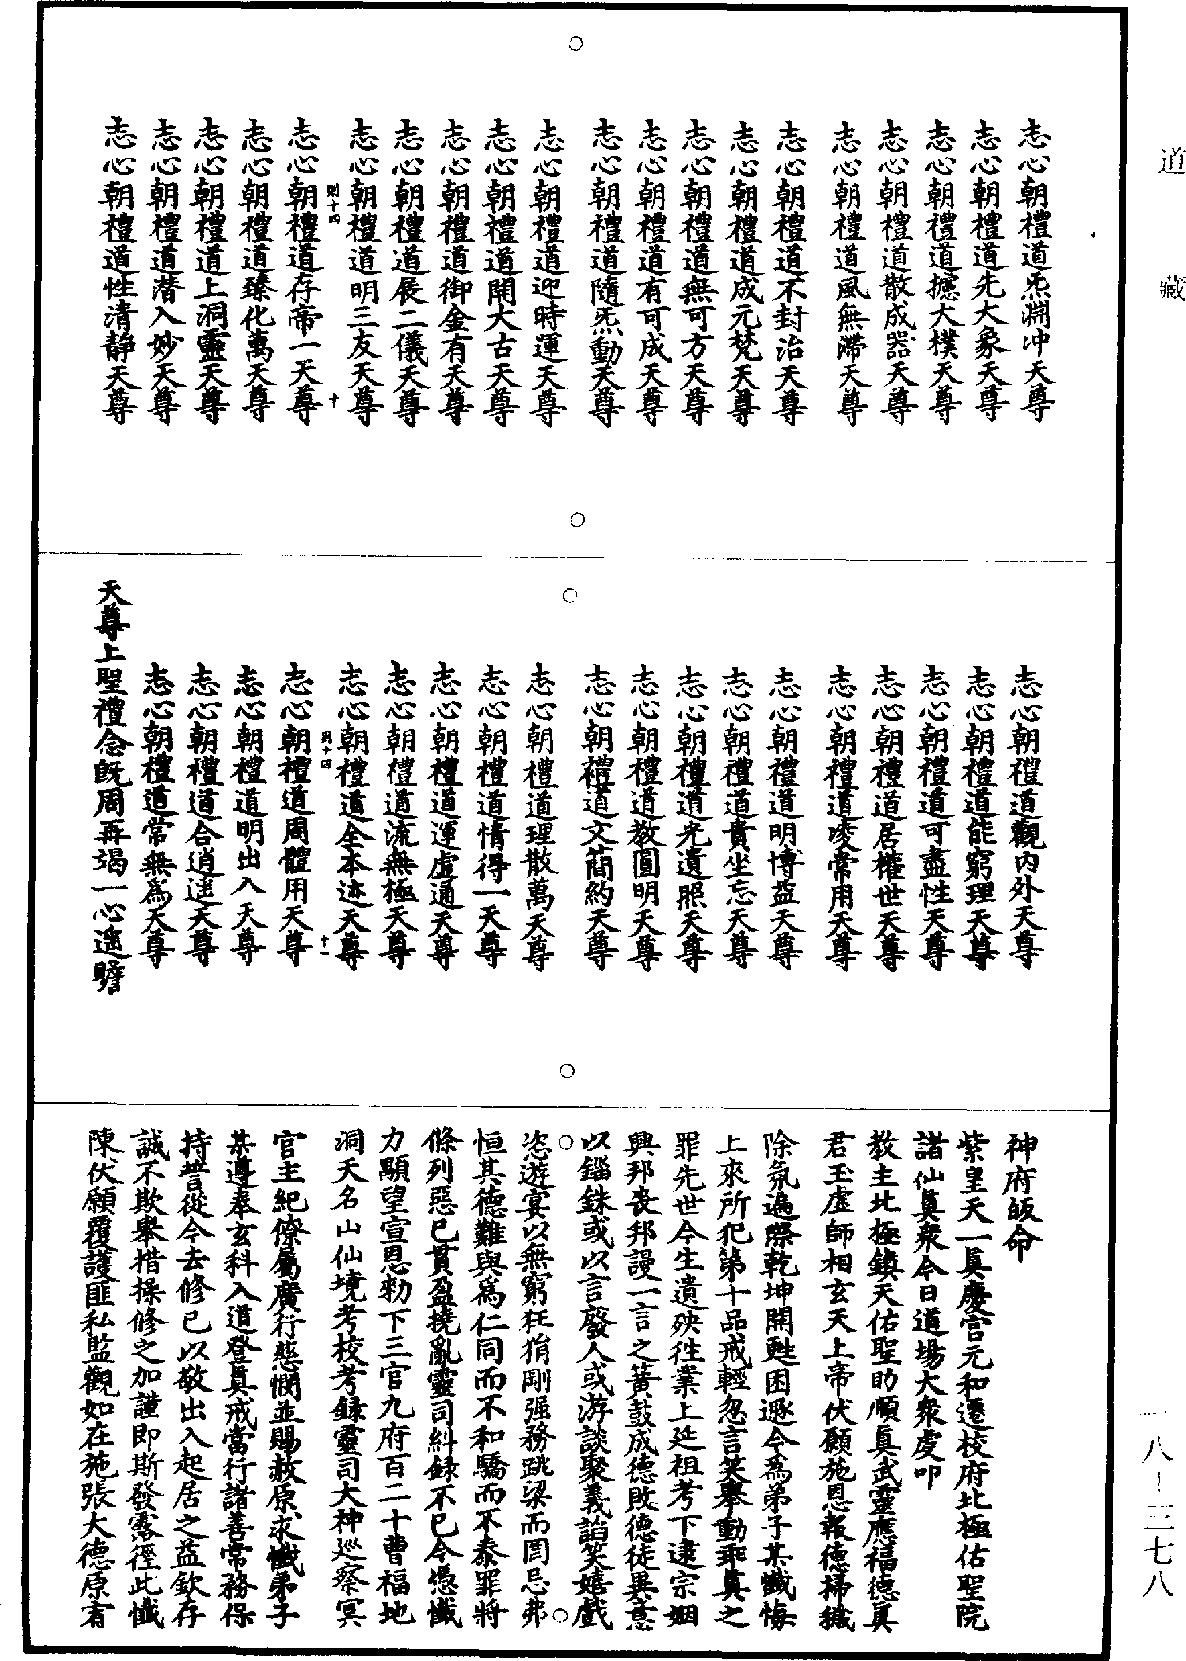 道藏
志心朝禮道炁淵冲天尊
志心朝禮道先大象天尊
志心朝禮道攄大樸天尊
志心朝禮道散成器天尊
志心朝禮道風無滯天尊
志心朝禮道不封治天尊
志心朝禮道成元梵天尊
志心朝禮道無可方天尊
志心朝禮道有可成天尊
志心朝禮道隨炁動天尊
志心朝禮道迎時運天尊
志心朝禮道開大古天尊
志心朝禮道御金有天尊
志心朝禮道展二儀天尊
志心朝禮道明三友天尊
則十四 十
志心朝禮道存帝一天尊
志心朝禮道臻化萬天尊
志心朝禮道上洞靈天尊
志心朝禮道潛入妙天尊
志心朝禮道性清静天尊
志心朝禮道觀內外天尊
志心朝禮道能窮理天尊
志心朝禮道可盡性天尊
志心朝禮道居權世天尊
志心朝禮道凌常用天尊
志心朝禮道明博益天尊
志心朝禮道貴坐忘天尊
志心朝禮道光遺照天尊
志心朝禮道教圓明天尊
志心朝禮道文簡約天尊
志心朝禮道理散萬天尊
志心朝禮道情得一天尊
志心朝禮道運虛通天尊
志心朝禮道流無極天尊
志心朝禮道全本迹天尊
則十四 十一
志心朝禮道周體用天尊
志心朝禮道明出入天尊
志心朝禮道合逍遥天尊
志心朝禮道常無爲天尊
天尊上聖禮念旣周再竭一心遥瞻
神府皈命
紫皇天一真慶宮元和遷校府北極佑聖院
諸仙真衆今日道場大衆虔叩
教主北極鎮天佑聖助順真武靈應福德真
君玉虛師相玄天上帝伏願施恩報德掃穢
除氛遍際乾坤開甦困趣今爲弟子某懺悔
上來所犯第十品戒輕忽言笑舉動乖真之
罪先世今生遺殃徃業上延祖考下逮宗姻
興邦喪邦謾一言之簧鼓成德敗德徒異意
以錙銖或以言廢人或游談聚義諂笑嬉戲
恣遊宴以無窮枉狷剛强務跳梁而罔忌弗
恒其德難與爲仁同而不和驕而不泰罪將
條列惡已貫盈撓亂靈司糾録不已今憑懺
力顯望宣恩勑下三官九府百二十曹福地
洞天名山仙境考校考録靈司大神巡察冥
官主紀僚屬廣行慈憫並賜赦原求懺弟子
某遵奉玄科入道登真戒當行諸善常務保
持誓從今去修已以敬出入起居之益欽存
誠不欺舉措操修之加謹即斯發露徑此懺
陳伏願覆護匪私監觀如在施張大德原宥
一八-三七八